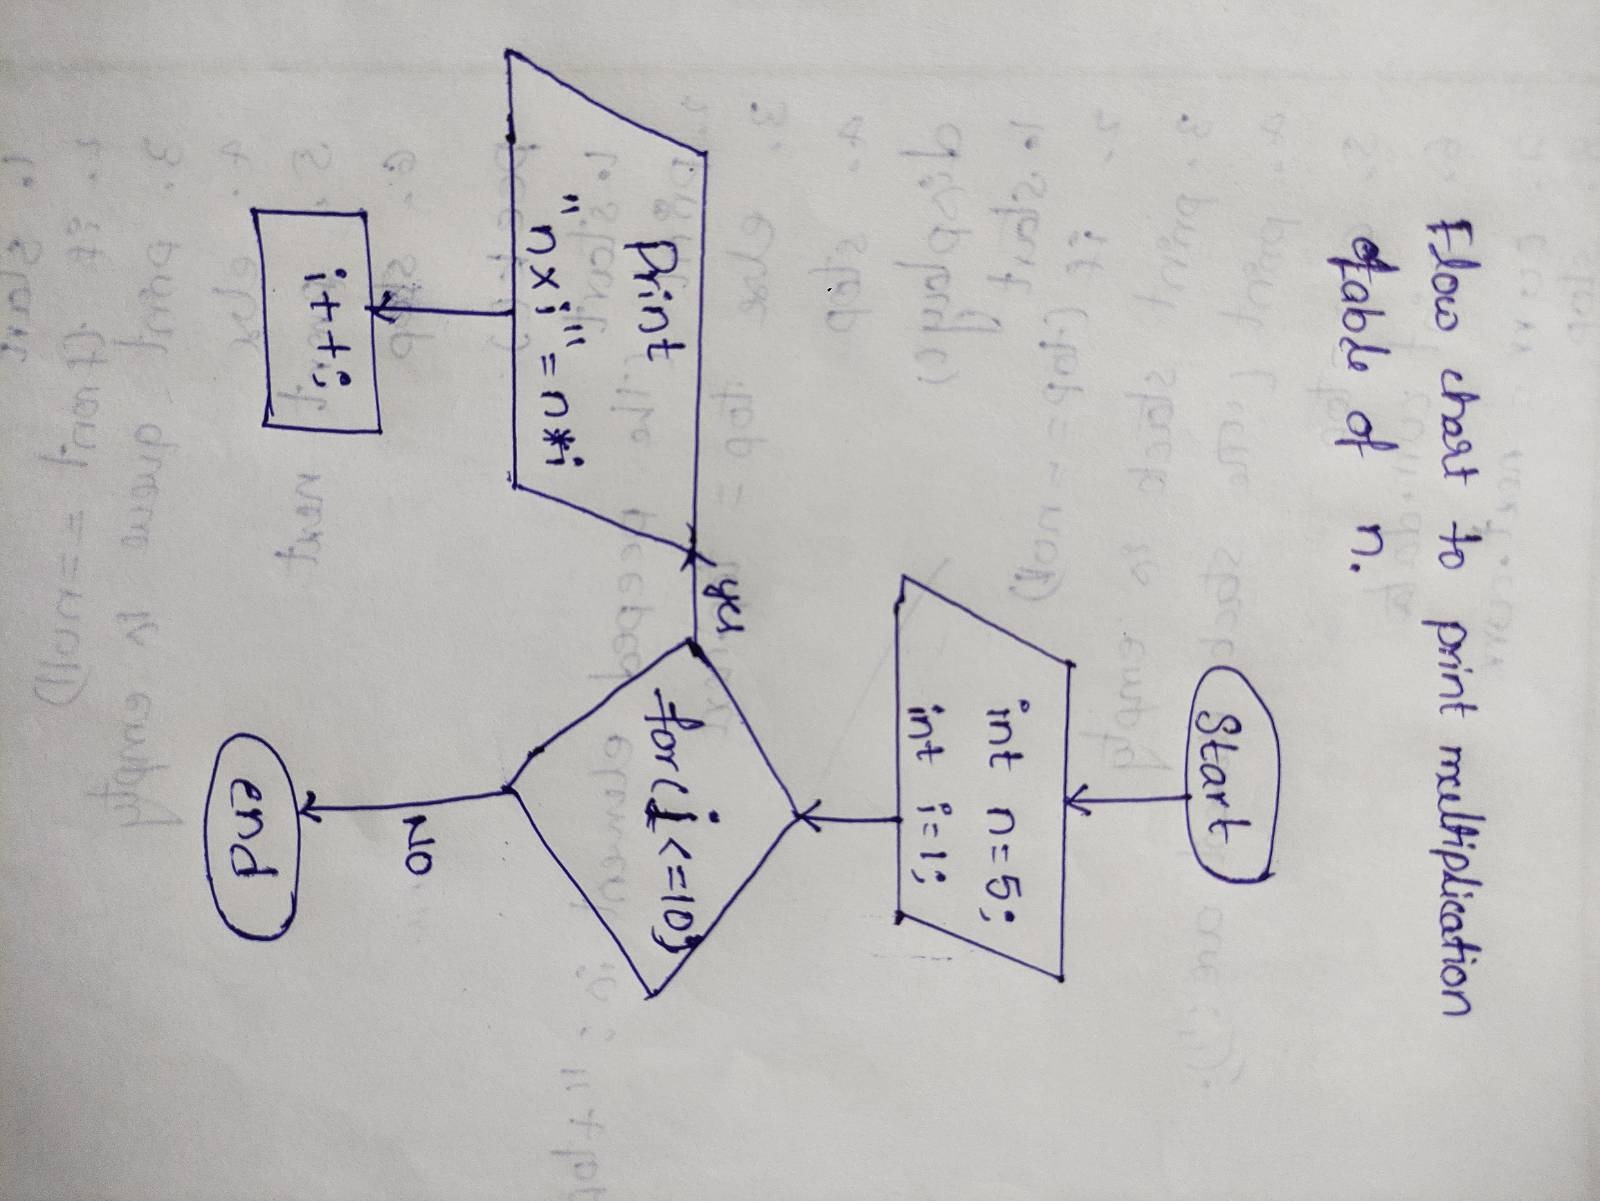 Flow chart to print multiplication
table of n.
Start
int n=5;
int i=1;
for(i<=10;
yes
Print
"nxi" = n*i
i++;
No
end